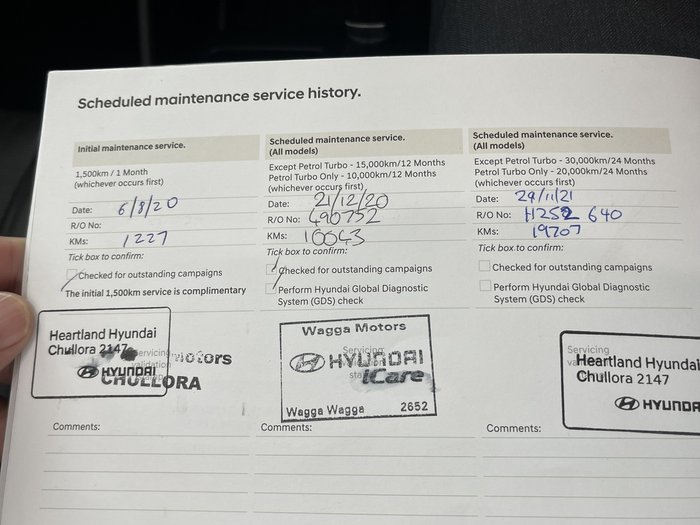 Scheduled maintenance service history.
Initial maintenance service.
1,500km / 1 Month
(whichever occurs first)
Date: 6/8/20
R/O No:
KMs: 1227
Tick box to confirm:
Checked for outstanding campaigns
The initial 1,500km service is complimentary
Heartland Hyundai
Chullora 2147
HYUNDAI
Motors
CHULLORA
Comments:
Scheduled maintenance service.
(All models)
Except Petrol Turbo - 15,000km/12 Months
Petrol Turbo Only - 10,000km/12 Months
(whichever occurs first)
Date: 21/12/20
R/O No: 490752
KMs: 10043
Tick box to confirm:
Checked for outstanding campaigns
Perform Hyundai Global Diagnostic
System (GDS) check
Wagga Motors
Servicing
HYUNDAI
iCare
Wagga Wagga 2652
Comments:
Scheduled maintenance service.
(All models)
Except Petrol Turbo - 30,000km/24 Months
Petrol Turbo Only - 20,000km/24 Months
(whichever occurs first)
Date: 29/11/21
R/O No: H252640
KMs: 19707
Tick box to confirm:
Checked for outstanding campaigns
Perform Hyundai Global Diagnostic
System (GDS) check
Servicing
Heartland Hyundai
Chullora 2147
HYUNDA
Comments: